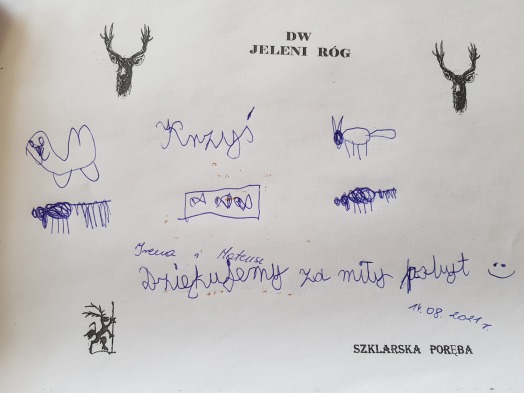 DW
JELENI RÓG
Krzyś
Irena i Mateusz
Dziękujemy za miły pobyt
14.08.2021 r.
SZKLARSKA PORĘBA